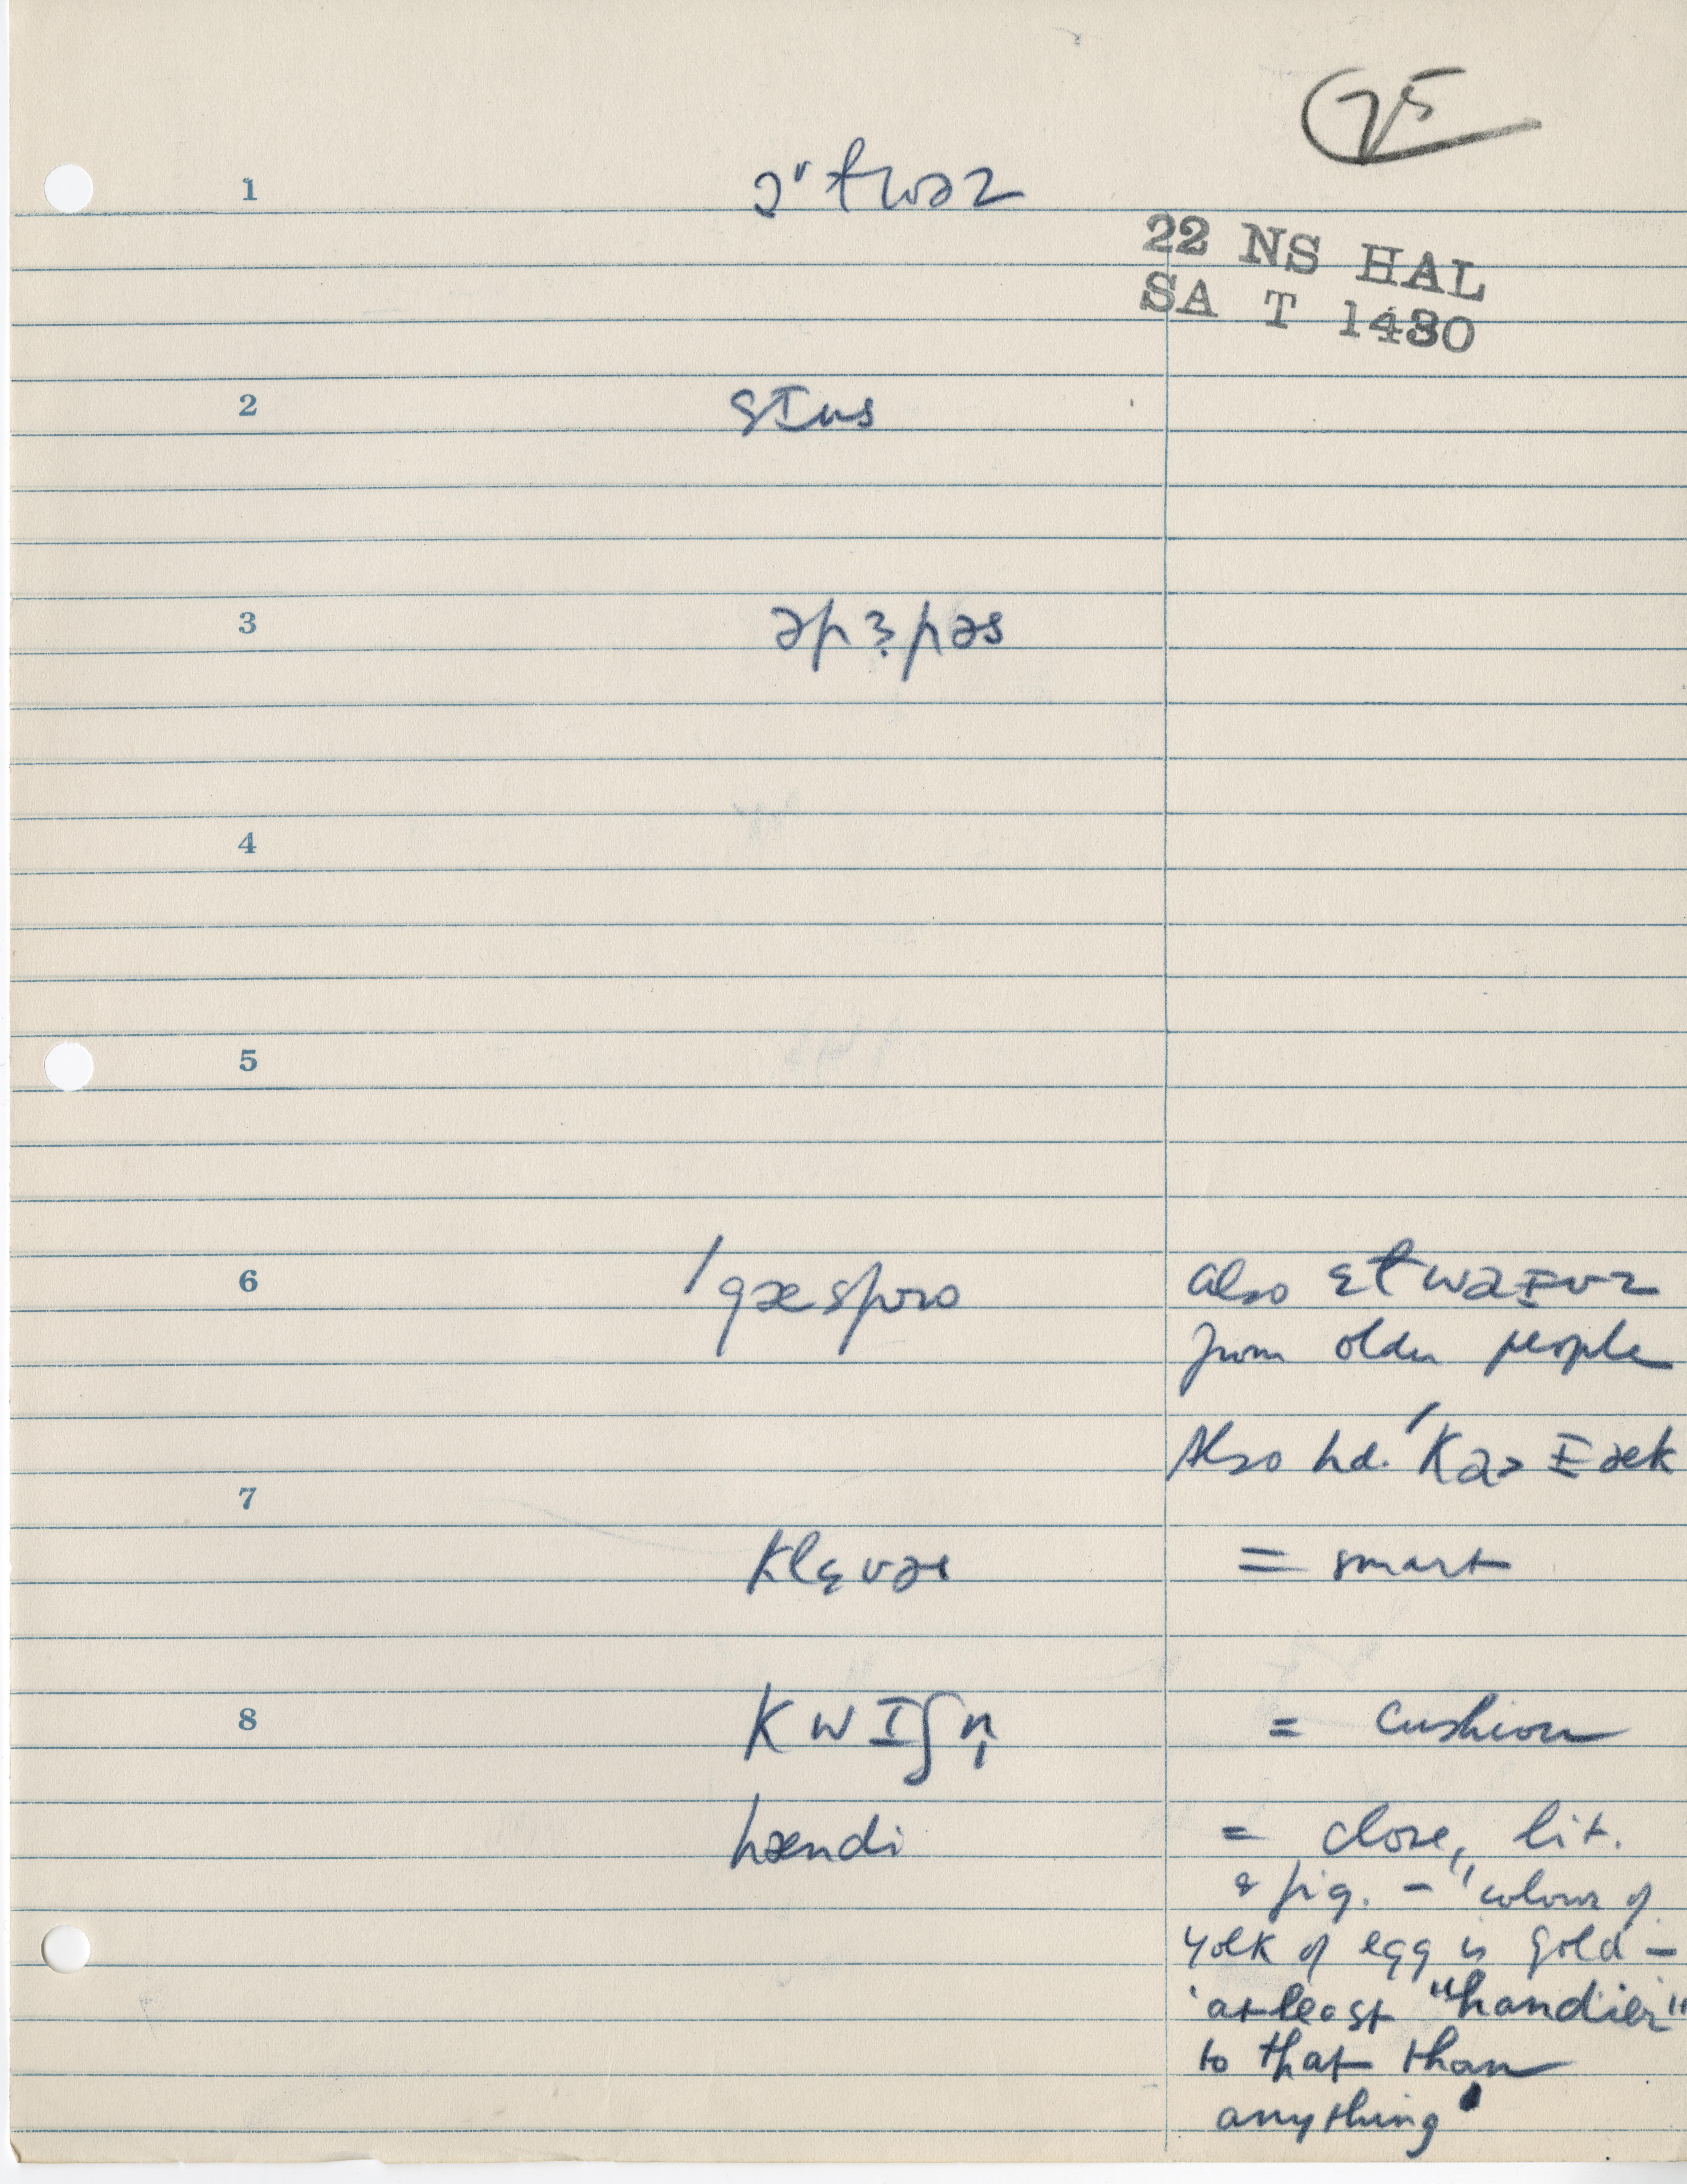 75
1 ə"twəz
22 NS HAL
SA T 1430
2 sɪns
3 əpɜpəs
4
5
6 /gæspro also
from older people
Also hd.
7
klɛvəɹ = smart
8 kwɪʃn̩ = cushion
hændi = close, lit.
& fig. – "colour of
yolk of egg is gold –
at least "handier"
to that than
anything'